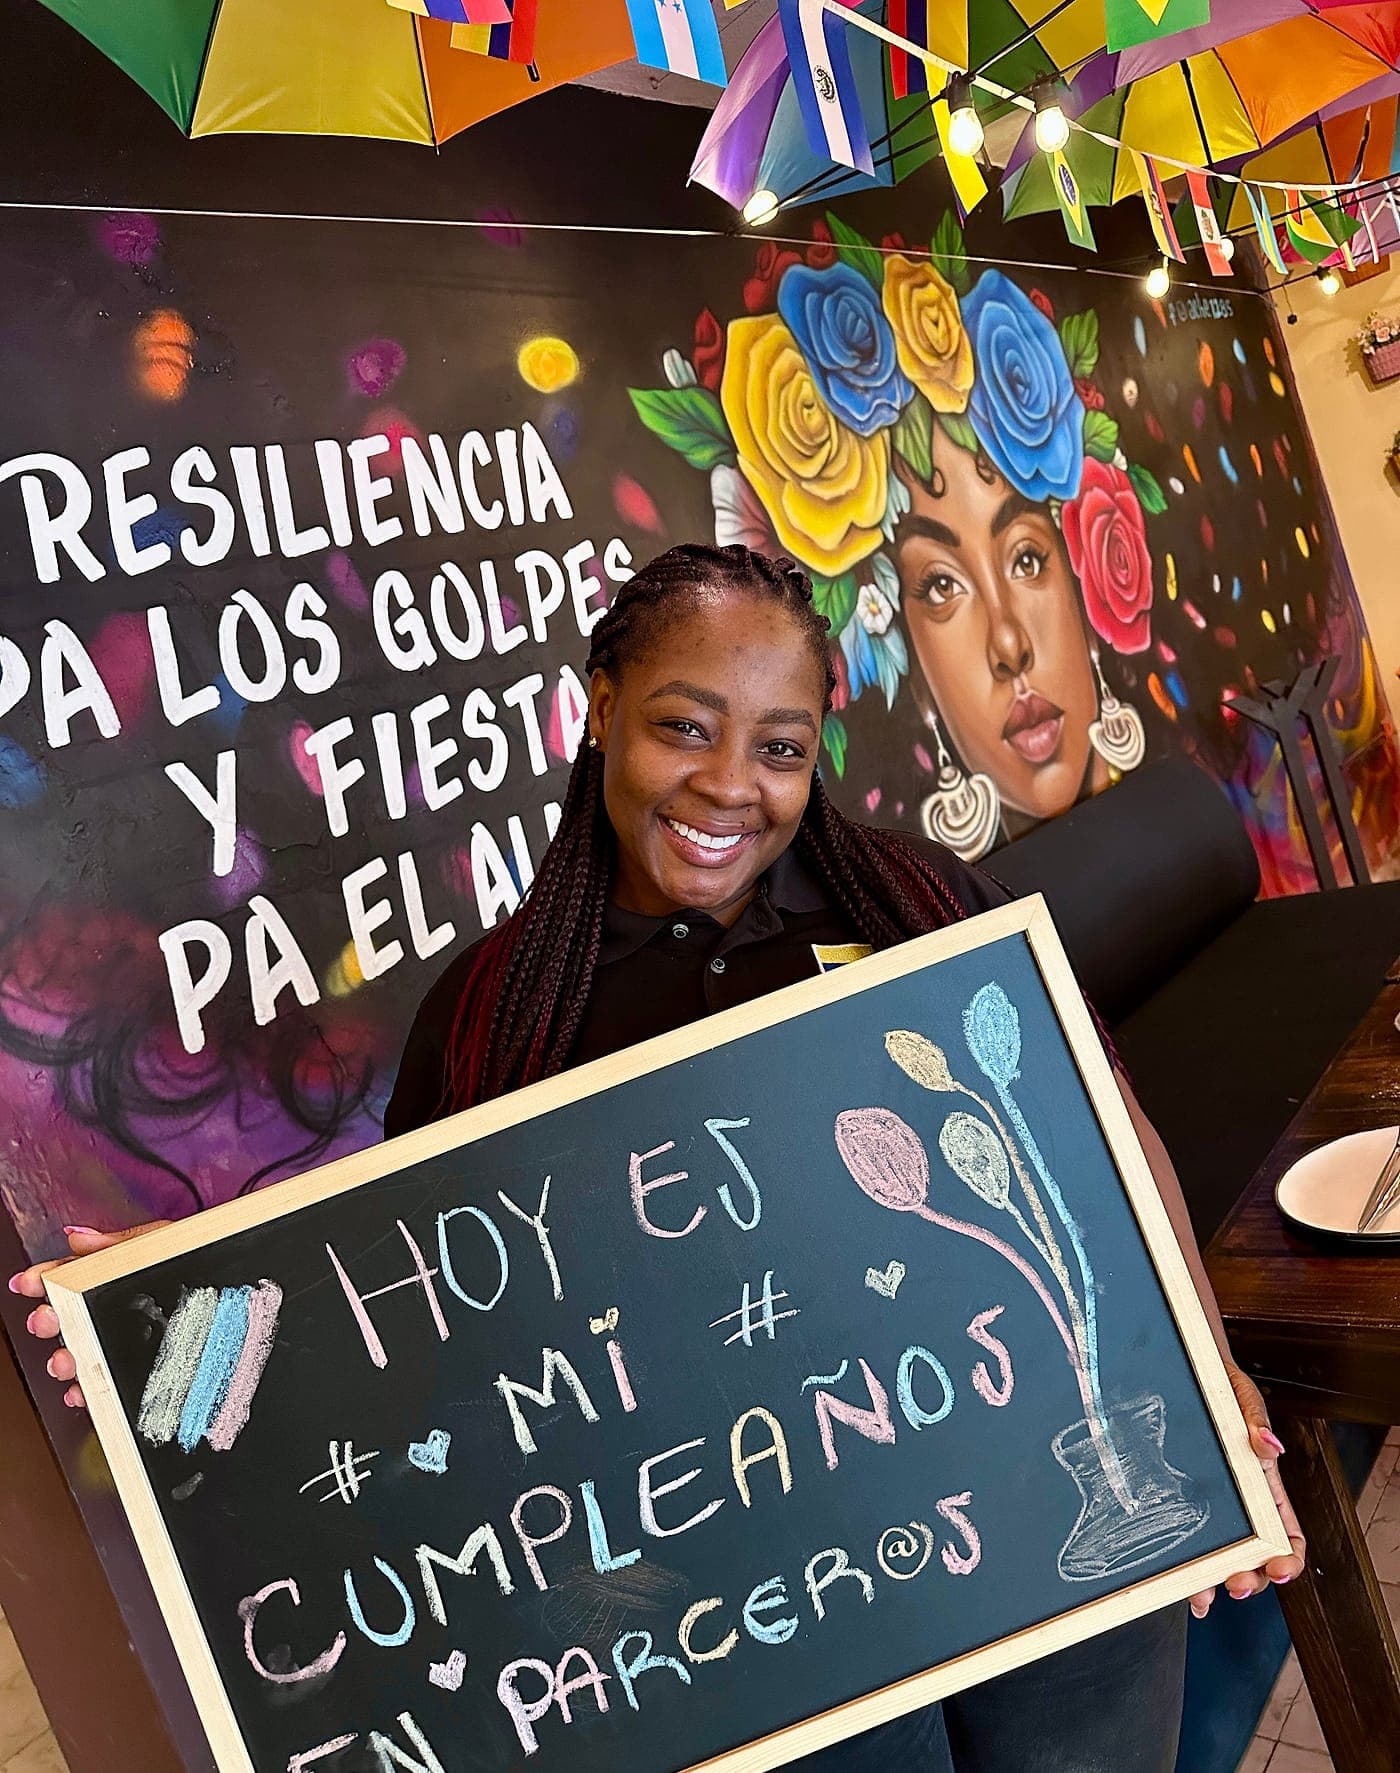 RESILIENCIA
PA LOS GOLPES
Y FIESTA
PA EL
HOY ES
# MI #
CUMPLEAÑOS
EN PARCER@S